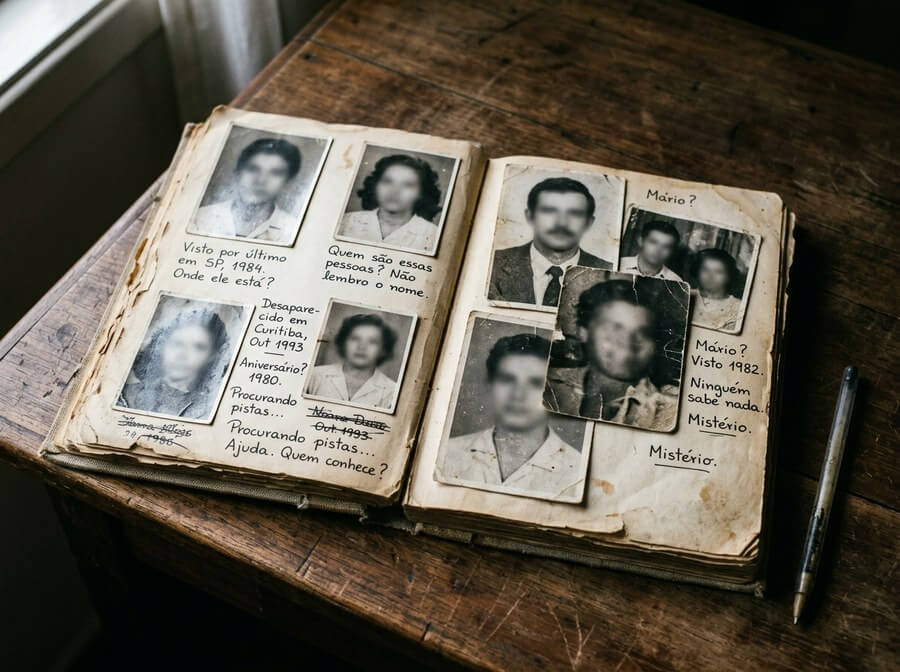 Visto por último
em SP, 1984.
Onde ele está?
Quem são essas
pessoas? Não
lembro o nome.
Desapare-
cido em
Curitiba,
Out 1993
Aniversário?
1980.
Procurando
pistas...
Out 1993.
Procurando pistas...
Ajuda. Quem conhece?
Mário?
Mário?
Visto 1982.
Ninguém
sabe nada.
Mistério.
Mistério.